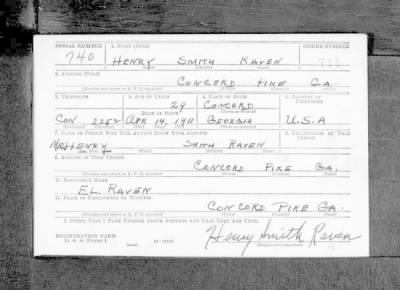 SERIAL NUMBER 1. NAME (Print) ORDER NUMBER
740 HENRY SMITH RAVEN 788
(First) (Middle) (Last)
2. ADDRESS (Print)
CONCORD PIKE GA.
(Number and street or R. F. D. number) (Town) (County) (State)
3. TELEPHONE 4. AGE IN YEARS 5. PLACE OF BIRTH 6. COUNTRY OF CITIZENSHIP
29 CONCORD
DATE OF BIRTH (Town or county)
CON 2252 APR 14, 1911 GEORGIA U.S.A
(Exchange) (Number) (Mo.) (Day) (Yr.) (State or country)
7. NAME OF PERSON WHO WILL ALWAYS KNOW YOUR ADDRESS 8. RELATIONSHIP OF THAT PERSON
HENRY SMITH RAVEN
(Mr., Mrs., Miss) (First) (Middle) (Last)
9. ADDRESS OF THAT PERSON
CONCORD PIKE GA.
(Number and street or R. F. D. number) (Town) (County) (State)
10. EMPLOYER'S NAME
E.L. RAVEN
11. PLACE OF EMPLOYMENT OR BUSINESS
CONCORD PIKE GA.
(Number and street or R. F. D. number) (Town) (County) (State)
I AFFIRM THAT I HAVE VERIFIED ABOVE ANSWERS AND THAT THEY ARE TRUE.
REGISTRATION CARD
D. S. S. FORM 1 (over) Henry Smith Raven
(Registrant's signature)